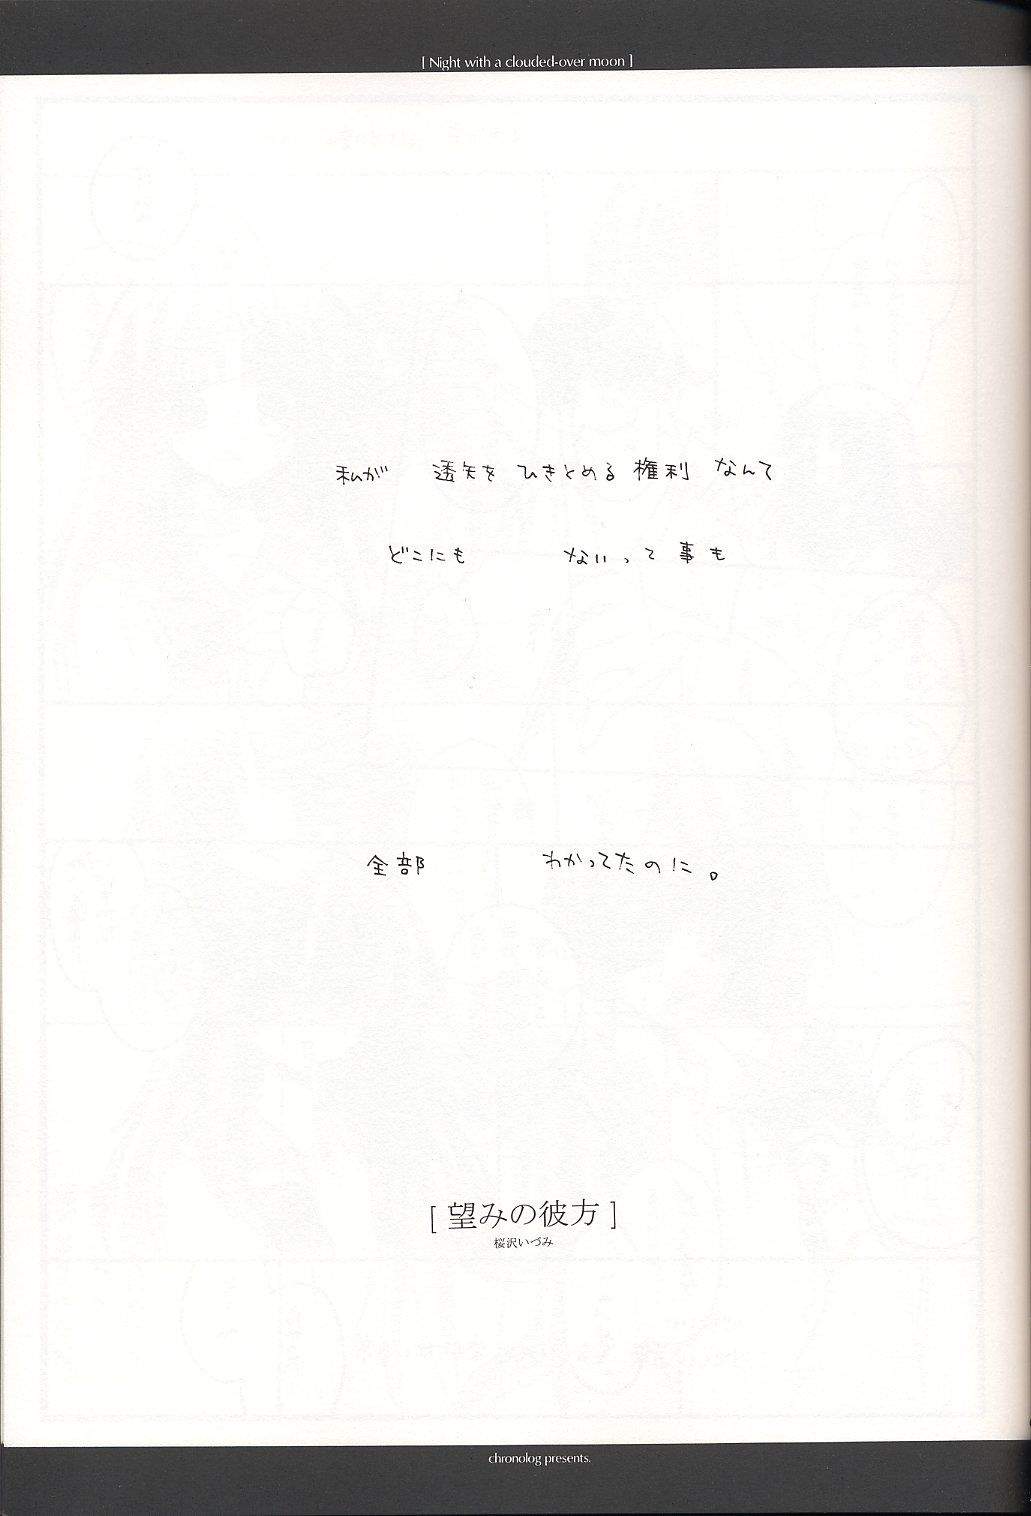 [ Night with a clouded-over moon ]
私が 透矢を ひきとめる 権利 なんて
どこにも ないって 事も
全部 わかってたのに。
[ 望みの彼方 ]
桜沢いづみ
chronolog presents.